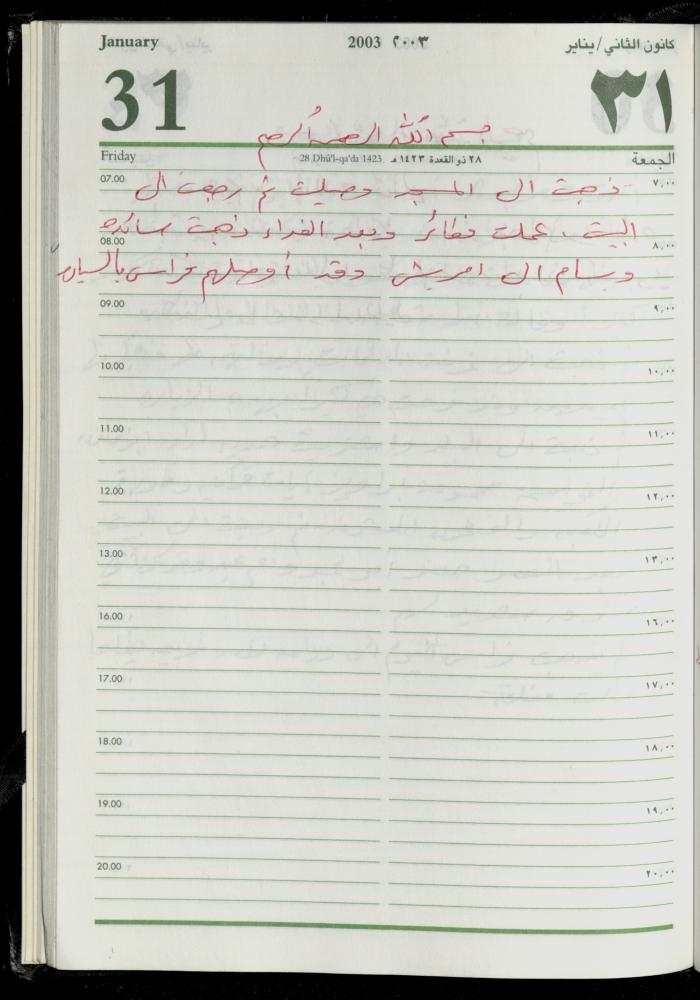 January 2003 ٢٠٠٣ كانون الثاني/يناير
31 ٣١
بسم الله الرحمن الرحيم
Friday 28 Dhû'l-qa'da 1423 ٢٨ ذو القعدة ١٤٢٣ هـ الجمعة
07.00 ٧,٠٠
ذهبت الى المسجد وصليت ثم رجعت الى
البيت، عملت فطائر وبعد الغداء ذهبت سائده
08.00 ٨,٠٠
وسام الى امريش وقد أوصلهم فراس بالسياره
09.00 ٩,٠٠
10.00 ١٠,٠٠
11.00 ١١,٠٠
12.00 ١٢,٠٠
13.00 ١٣,٠٠
16.00 ١٦,٠٠
17.00 ١٧,٠٠
18.00 ١٨,٠٠
19.00 ١٩,٠٠
20.00 ٢٠,٠٠